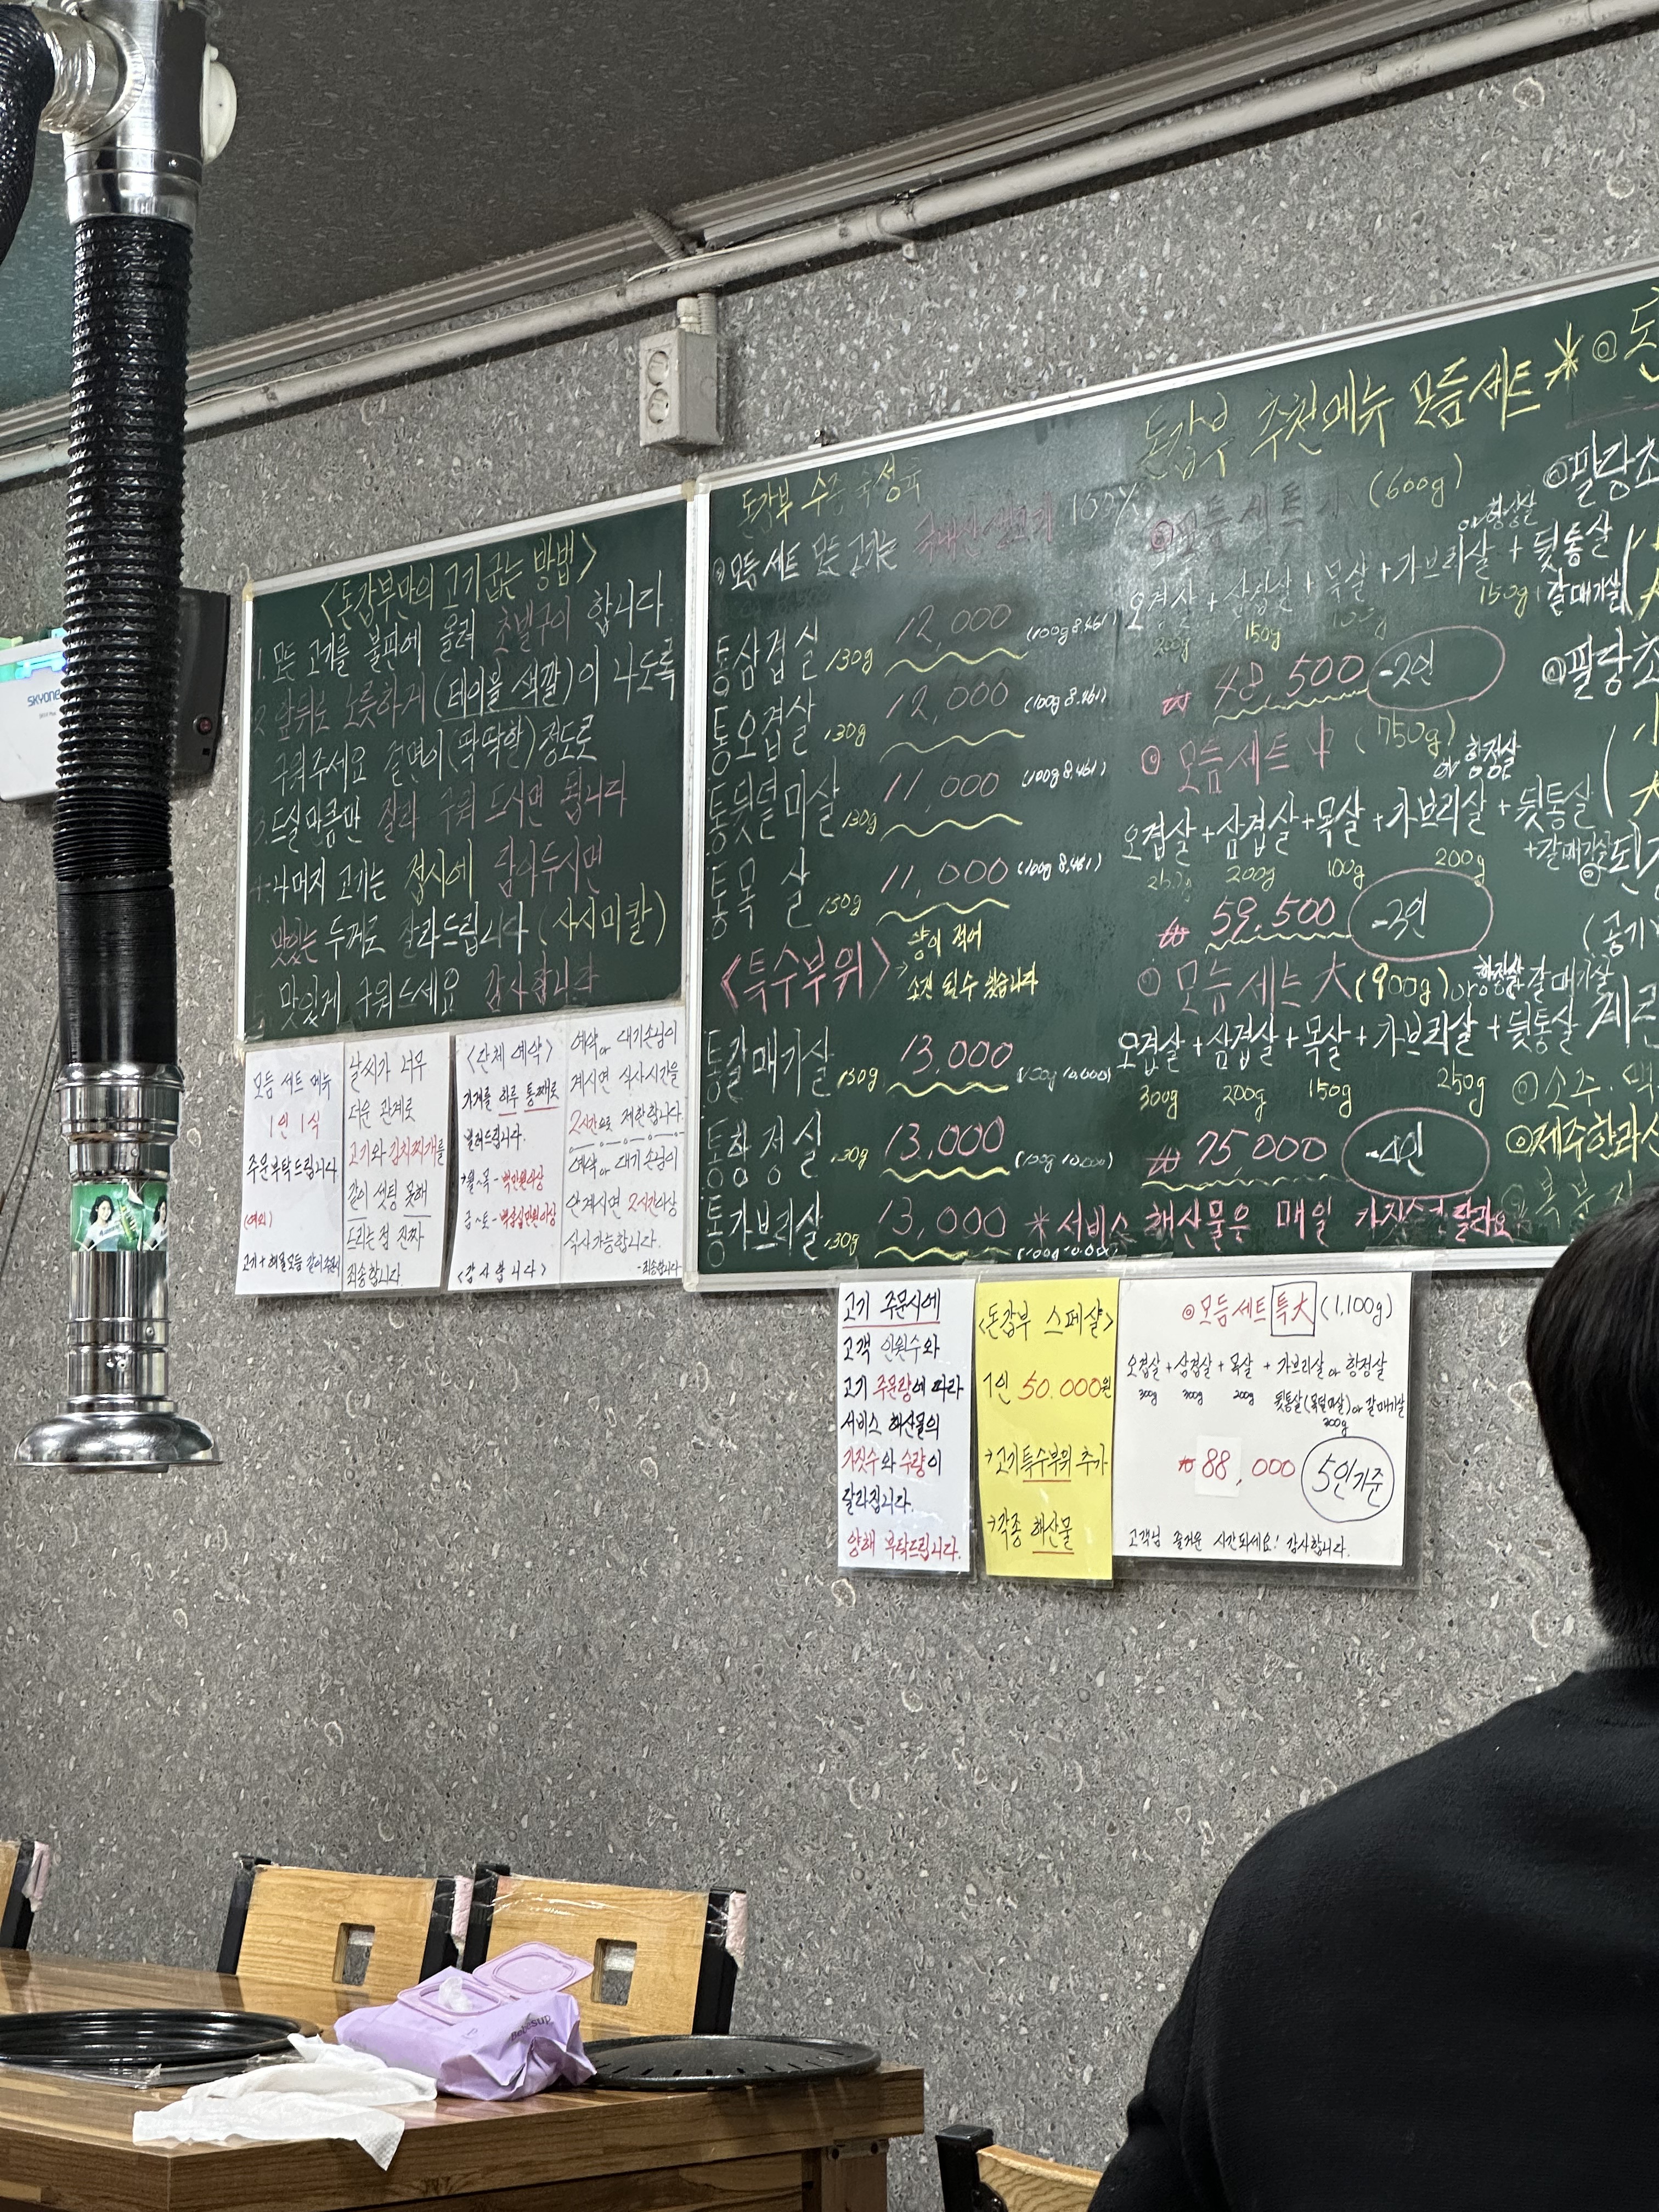 <돈감부만의 고기 굽는 방법>
1. 모든 고기를 불판에 올려 초벌구이 합니다
2. 앞뒤로 노릇하게 (테이블 색깔)이 나도록
구워주세요 겉면이 (딱딱할) 정도로
3. 드실만큼만 잘라 구워 드시면 됩니다
4. 나머지 고기는 접시에 담아두시면
맛있는 두께로 잘라드립니다 (사시미칼)
5. 맛있게 구워드세요 감사합니다
모듬 세트 메뉴
1인 1식
주문부탁드립니다
(예외)
고기 + 해물모듬 같이
날씨가 너무
더운 관계로
고기와 김치찌개를
같이 셋팅 못해
드리는점 진짜
죄송합니다
<단체 예약>
가게를 하루 통째로
빌려드립니다.
→월~목 - 백만원이상
금~토 - 백오십만원이상
<감사합니다>
예약 or 대기손님이
계시면 식사시간을
2시간으로 제한합니다.
예약 or 대기손님이
안계시면 2시간이상
식사가능합니다.
-죄송합니다
돈감부 수준 숙성육
◎모듬세트 모든 고기는 국내산 생고기 100%
통삼겹살 130g 12,000 (100g 8,461)
통오겹살 130g 12,000 (100g 8,461)
통뒷덜미살 130g 11,000 (100g 8,461)
통목살 130g 11,000 (100g 8,461)
<특수부위> → 양이 적어
소진 될수 있습니다
통갈매기살 130g 13,000 (100g 10,000)
통항정살 130g 13,000 (100g 10,000)
통가브리살 130g 13,000 (100g 10,000)
돈감부 추천메뉴 모듬세트 *
◎모듬세트 小 (600g)
or 항정살
오겹살 + 삼겹살 + 목살 + 가브리살 + 뒷통살
200g 150g 100g 150g 갈매기살
₩ 48,500 -2인
◎ 모듬세트 中 (750g)
or 항정살
오겹살 + 삼겹살 + 목살 + 가브리살 + 뒷통살
200g 100g 200g +갈매기살
₩ 59,500 -3인
◎ 모듬세트 大 (900g) or 항정살 갈매기살
오겹살 + 삼겹살 + 목살 + 가브리살 + 뒷통살
300g 200g 150g 250g
₩ 75000 -4인
*서비스 해산물은 매일 가짓수가 달라요
◎돈
◎팔당초
◎팔당초
(공기
계란
◎소주·맥
◎제주한라산
◎복분자
고기 주문시에
고객 인원수와
고기 주문량에 따라
서비스 해산물의
가짓수와 수량이
달라집니다.
양해 부탁드립니다.
<돈감부 스페샬>
1인 50.000원
→고기특수부위 추가
→각종 해산물
◎모듬세트 特大 (1,100g)
오겹살 + 삼겹살 + 목살 + 가브리살 or 항정살
300g 300g 200g 뒷통살(목덜미살) or 갈매기살
300g
₩ 88,000 5인기준
고객님 즐거운 시간되세요! 감사합니다.
SKYONE
Bebesup